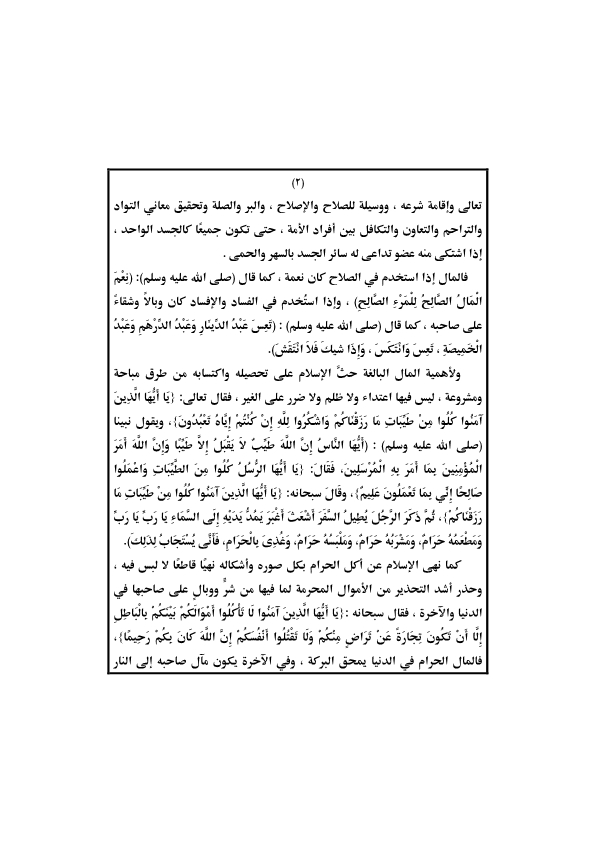 (٢)
تعالى وإقامة شرعه ، ووسيلة للصلاح والإصلاح ، والبر والصلة وتحقيق معاني التواد
والتراحم والتعاون والتكافل بين أفراد الأمة ، حتى تكون جميعًا كالجسد الواحد ،
إذا اشتكى منه عضو تداعى له سائر الجسد بالسهر والحمى .
فالمال إذا استخدم في الصلاح كان نعمة ، كما قال (صلى الله عليه وسلم): (نِعْمَ
الْمَالُ الصَّالِحُ لِلْمَرْءِ الصَّالِحِ) ، وإذا استُخدم في الفساد والإفساد كان وبالاً وشقاءً
على صاحبه ، كما قال (صلى الله عليه وسلم) : (تَعِسَ عَبْدُ الدِّينَارِ وَعَبْدُ الدِّرْهَمِ وَعَبْدُ
الْخَمِيصَةِ ، تَعِسَ وَانْتَكَسَ ، وَإِذَا شِيكَ فَلاَ انْتَقَشَ).
ولأهمية المال البالغة حثَّ الإسلام على تحصيله واكتسابه من طرق مباحة
ومشروعة ، ليس فيها اعتداء ولا ظلم ولا ضرر على الغير ، فقال تعالى: {يَا أَيُّهَا الَّذِينَ
آمَنُوا كُلُوا مِنْ طَيِّبَاتِ مَا رَزَقْنَاكُمْ وَاشْكُرُوا لِلَّهِ إِنْ كُنْتُمْ إِيَّاهُ تَعْبُدُونَ}، ويقول نبينا
(صلى الله عليه وسلم) : (أَيُّهَا النَّاسُ إِنَّ اللَّهَ طَيِّبٌ لاَ يَقْبَلُ إِلاَّ طَيِّبًا وَإِنَّ اللَّهَ أَمَرَ
الْمُؤْمِنِينَ بِمَا أَمَرَ بِهِ الْمُرْسَلِينَ، فَقَالَ: {يَا أَيُّهَا الرُّسُلُ كُلُوا مِنَ الطَّيِّبَاتِ وَاعْمَلُوا
صَالِحًا إِنِّي بِمَا تَعْمَلُونَ عَلِيمٌ}، وقَالَ سبحانه: {يَا أَيُّهَا الَّذِينَ آمَنُوا كُلُوا مِنْ طَيِّبَاتِ مَا
رَزَقْنَاكُمْ}، ثُمَّ ذَكَرَ الرَّجُلَ يُطِيلُ السَّفَرَ أَشْعَثَ أَغْبَرَ يَمُدُّ يَدَيْهِ إِلَى السَّمَاءِ يَا رَبِّ يَا رَبِّ
وَمَطْعَمُهُ حَرَامٌ، وَمَشْرَبُهُ حَرَامٌ، وَمَلْبَسُهُ حَرَامٌ، وَغُذِىَ بِالْحَرَامِ، فَأَنَّى يُسْتَجَابُ لِذَلِكَ).
كما نهى الإسلام عن أكل الحرام بكل صوره وأشكاله نهيًا قاطعًا لا لبس فيه ،
وحذر أشد التحذير من الأموال المحرمة لما فيها من شرٍّ ووبالٍ على صاحبها في
الدنيا والآخرة ، فقال سبحانه :{يَا أَيُّهَا الَّذِينَ آمَنُوا لَا تَأْكُلُوا أَمْوَالَكُمْ بَيْنَكُمْ بِالْبَاطِلِ
إِلَّا أَنْ تَكُونَ تِجَارَةً عَنْ تَرَاضٍ مِنْكُمْ وَلَا تَقْتُلُوا أَنْفُسَكُمْ إِنَّ اللَّهَ كَانَ بِكُمْ رَحِيمًا}،
فالمال الحرام في الدنيا يمحق البركة ، وفي الآخرة يكون مآل صاحبه إلى النار